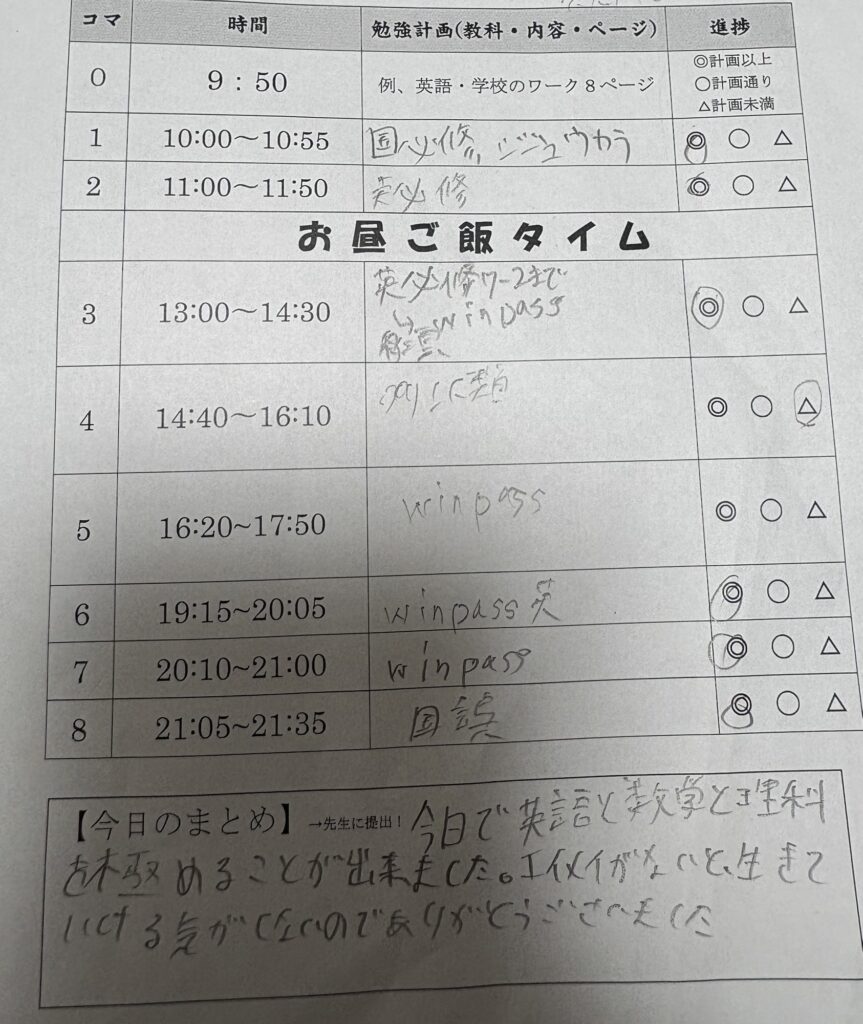 コマ 時間 勉強計画(教科・内容・ページ) 進捗
0 9：50 例、英語・学校のワーク８ページ ◎計画以上
○計画通り
△計画未満
1 10:00～10:55 国必修, シジュウカラ ◎ ○ △
2 11:00～11:50 英必修 ◎ ○ △
お昼ご飯タイム
3 13:00～14:30 英必修ワーク2まで
winpass
◎ ○ △
4 14:40～16:10 類 ◎ ○ △
5 16:20~17:50 winpass ◎ ○ △
6 19:15~20:05 winpass 英 ◎ ○ △
7 20:10~21:00 winpass ◎ ○ △
8 21:05~21:35 国語 ◎ ○ △
【今日のまとめ】→先生に提出！ 今日で英語と数学と理科
を極めることが出来ました。エイメイがないと、生きて
いける気がしないのでありがとうございました